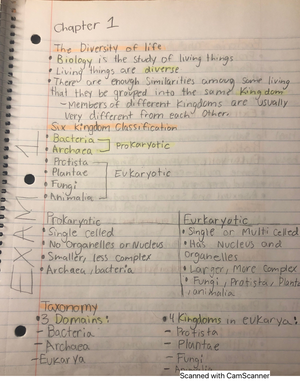 Chapter 1
The Diversity of life
• Biology is the study of living things
• Living things are diverse
• There are enough Similarities among some living
that they be grouped into the same Kingdom
~ Members of different Kingdoms are usually
very different from each other.
Six Kingdom Classification
• Bacteria
• Archaea
Prokaryotic
• Protista
• Plantae
• Fungi
• Animalia
Eukaryotic
EXAM 1
Prokaryotic
• Single celled
• No Organelles or Nucleus
• Smaller, less complex
• Archaea, bacteria
Eurkaryotic
• Single or Multi celled
• Has Nucleus and
organelles
• Larger, More Complex
• Fungi, Protista, Planta
, animalia
Taxonomy
• 3 Domains:
- Bacteria
- Archaea
- Eukarya
• 4 Kingdoms in eukarya:
- Protista
- Plantae
- Fungi
- Animalia
Scanned with CamScanner